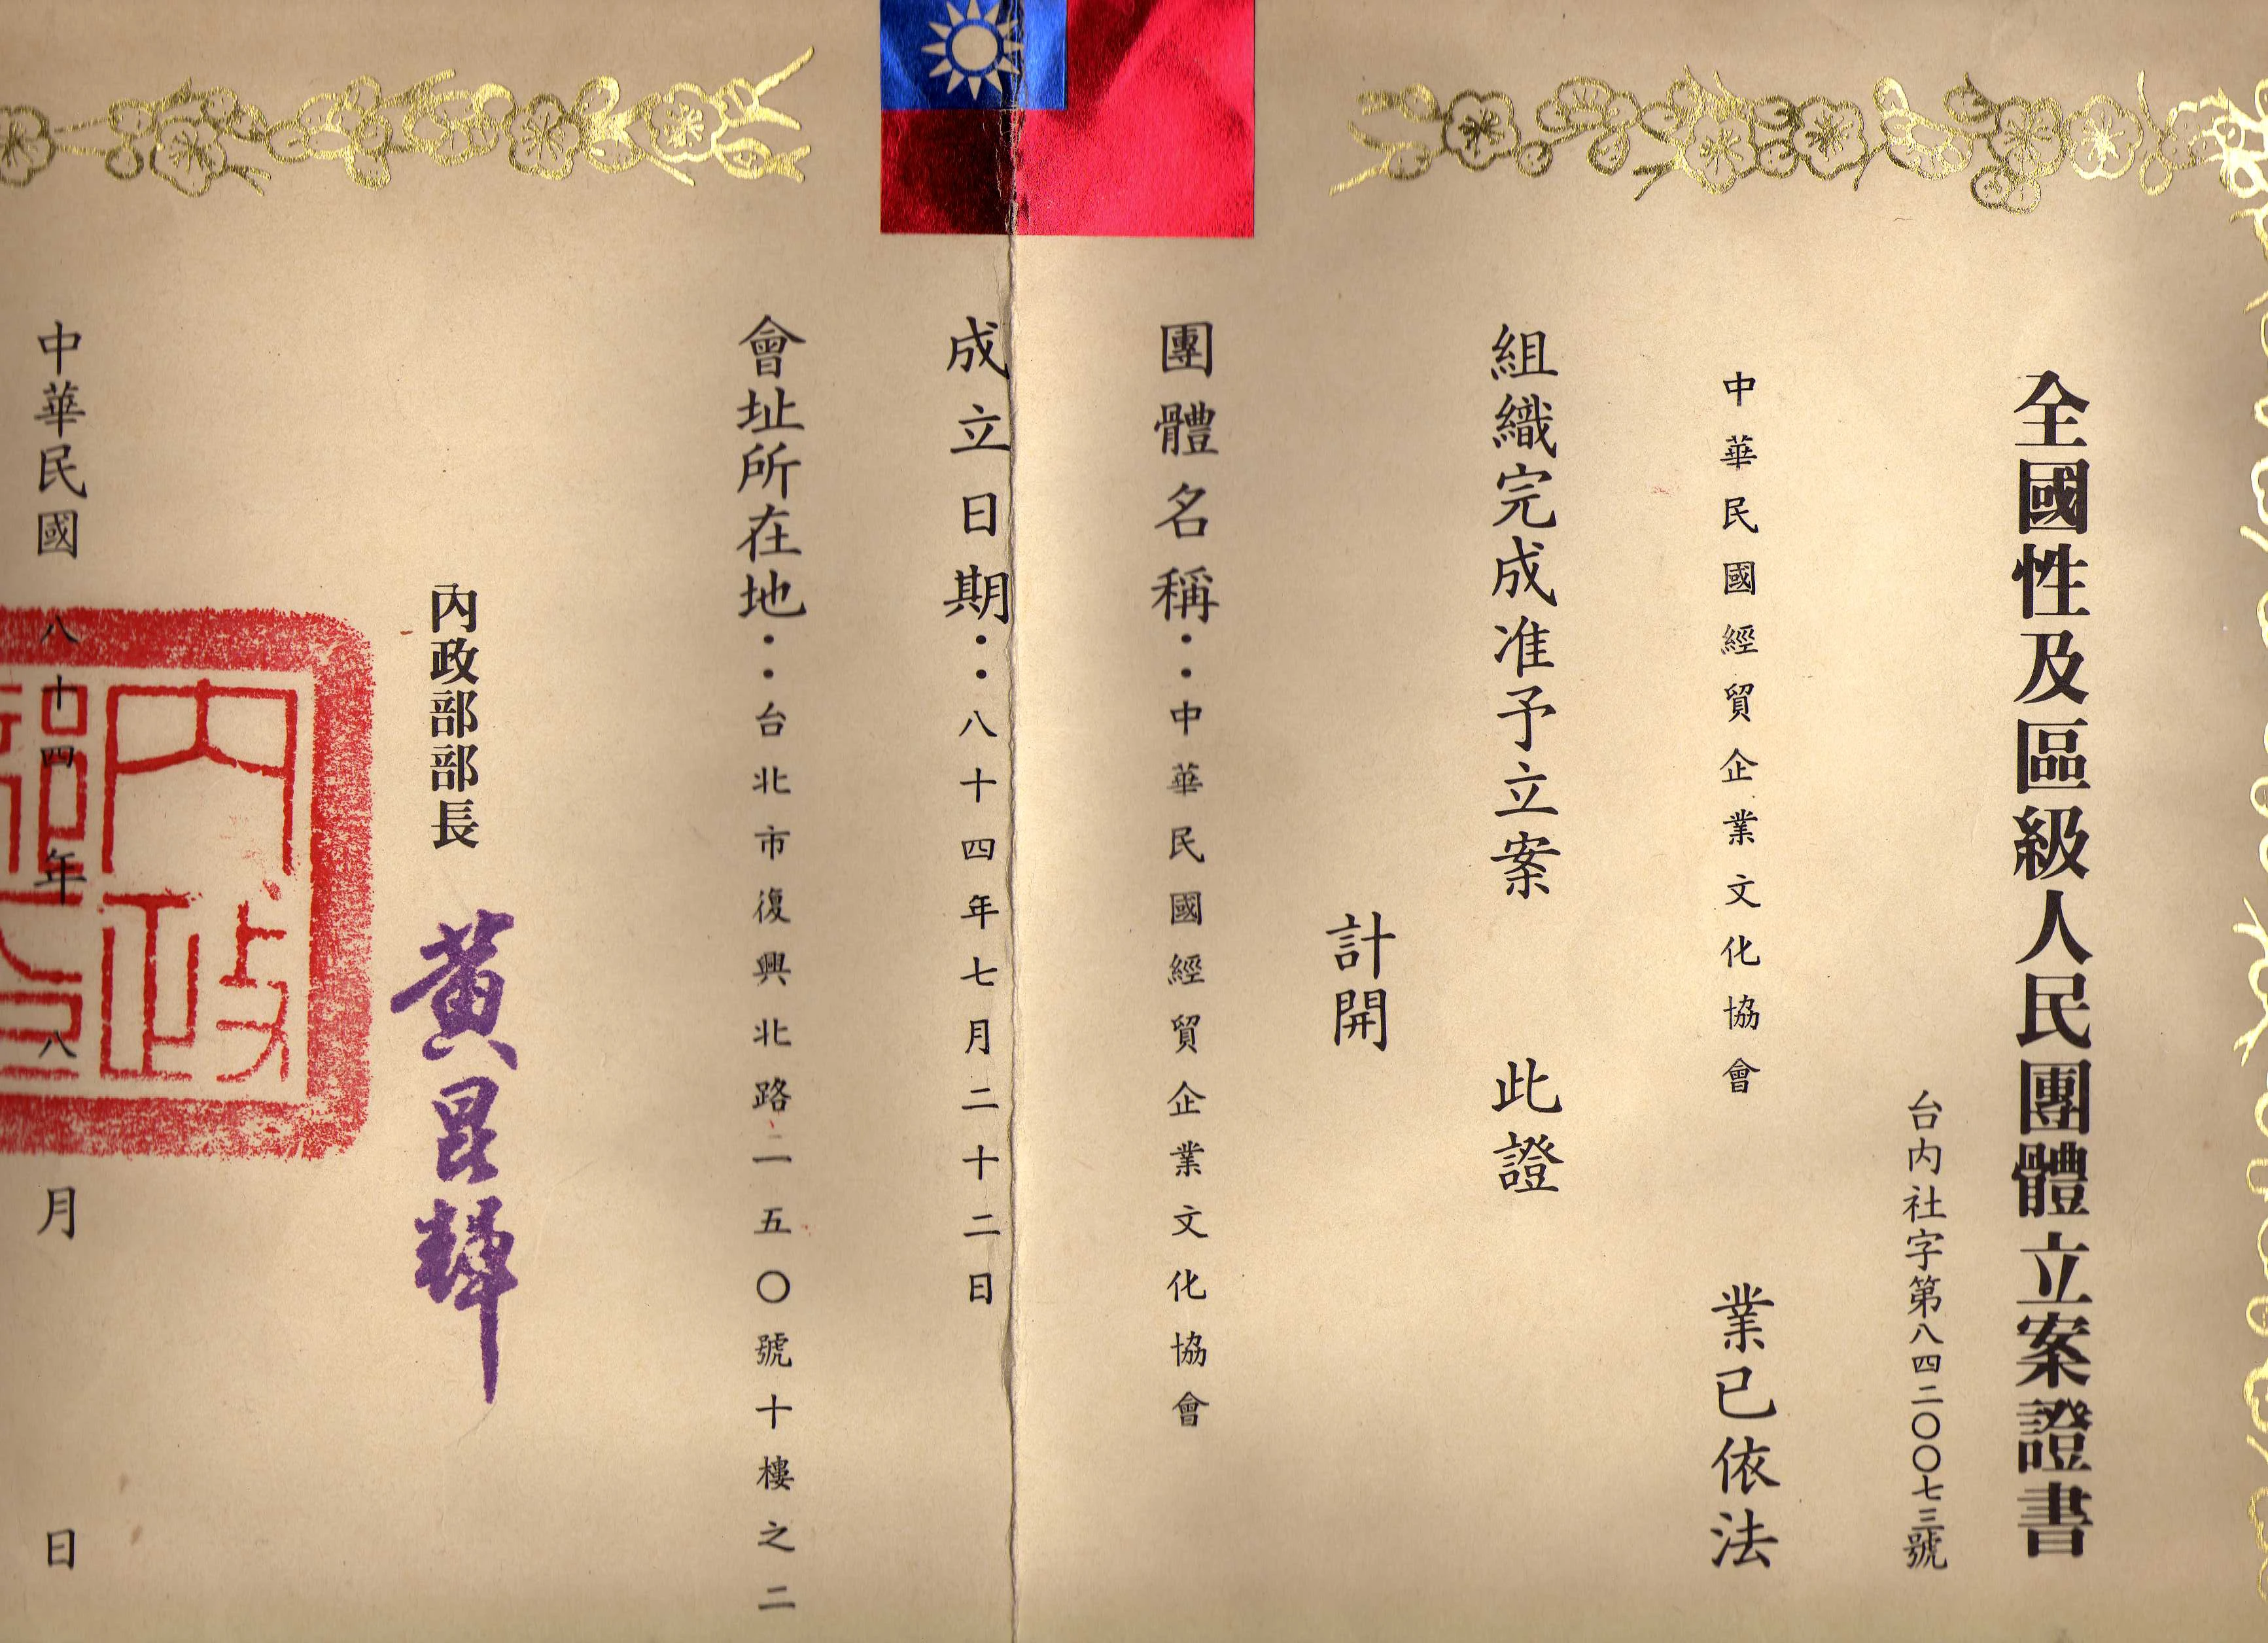 全國性及區級人民團體立案證書
台內社字第八四二〇〇七三號
中華民國經貿企業文化協會 業已依法
組織完成准予立案 此證
計開
團體名稱：中華民國經貿企業文化協會
成立日期：八十四年七月二十二日
會址所在地：台北市復興北路二一五〇號十樓之二
內政部部長 黃昆輝
中華民國八十四年八月 日
內政